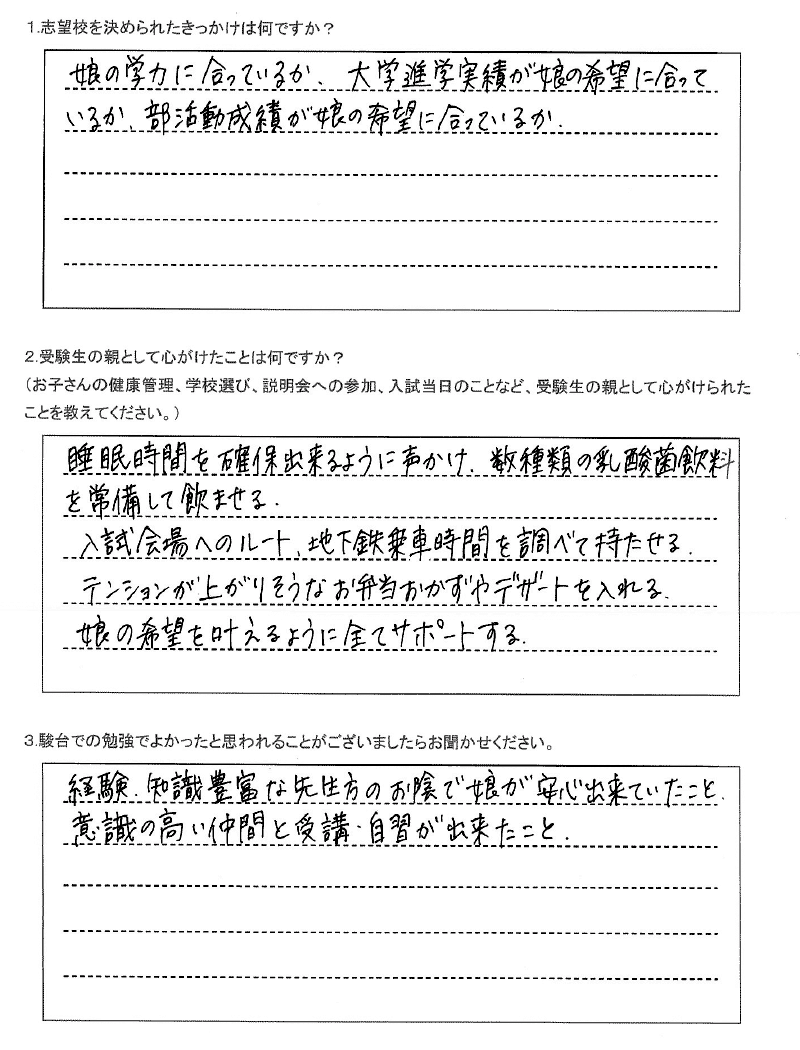 1.志望校を決められたきっかけは何ですか？
娘の学力に合っているか、大学進学実績が娘の希望に合って
いるか、部活動成績が娘の希望に合っているか．
2.受験生の親として心がけたことは何ですか？
（お子さんの健康管理、学校選び、説明会への参加、入試当日のことなど、受験生の親として心がけられた
ことを教えてください。）
睡眠時間を確保出来るように声かけ．数種類の乳酸菌飲料
を常備して飲ませる．
入試会場へのルート、地下鉄乗車時間を調べて持たせる．
テンションが上がりそうなお弁当おかずやデザートを入れる．
娘の希望を叶えるように全てサポートする．
3.駿台での勉強でよかったと思われることがございましたらお聞かせください。
経験．知識豊富な先生方のお陰で娘が安心出来ていたこと．
意識の高い仲間と受講・自習が出来たこと．